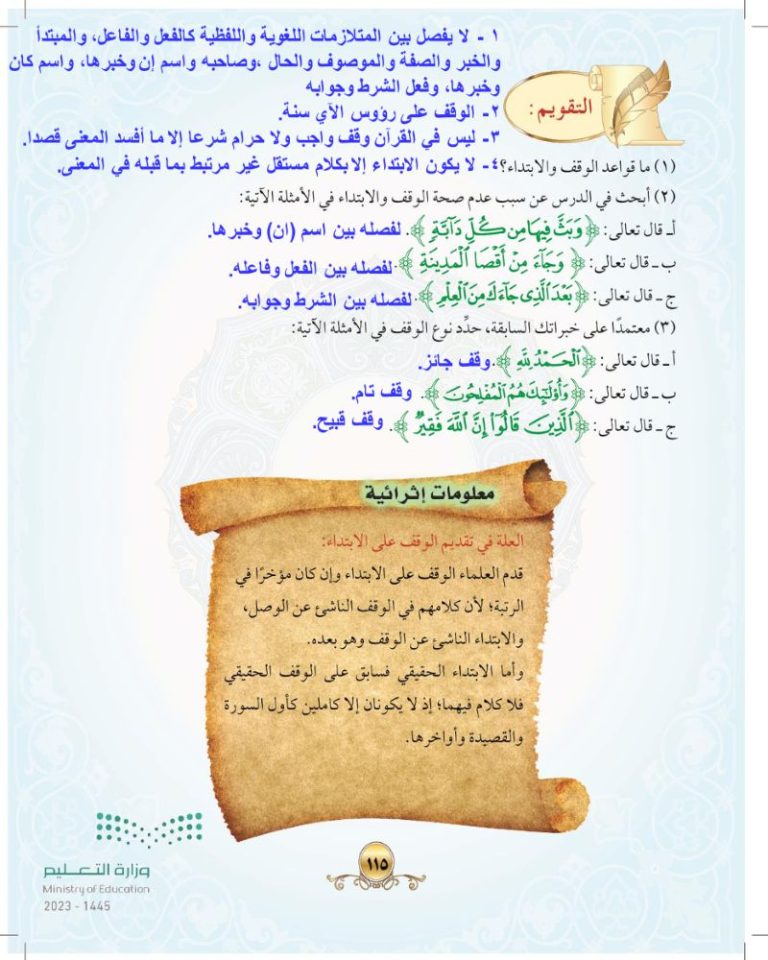 ١ - لا يفصل بين المتلازمات اللغوية واللفظية كالفعل والفاعل، والمبتدأ
والخبر والصفة والموصوف والحال ،وصاحبه واسم إن وخبرها، واسم كان
وخبرها، وفعل الشرط وجوابه
٢- الوقف على رؤوس الآي سنة.
التقويم:
٣- ليس في القرآن وقف واجب ولا حرام شرعا إلا ما أفسد المعنى قصدا.
(١) ما قواعد الوقف والابتداء؟ ٤- لا يكون الابتداء إلا بكلام مستقل غير مرتبط بما قبله في المعنى.
(٢) أبحث في الدرس عن سبب عدم صحة الوقف والابتداء في الأمثلة الآتية:
أـ قال تعالى: ﴿وَبَثَّ فِيهَا مِن كُلِّ دَآبَّةٖ﴾. لفصله بين اسم (ان) وخبرها.
ب ـ قال تعالى: ﴿وَجَآءَ مِنْ أَقْصَا ٱلْمَدِينَةِ﴾. لفصله بين الفعل وفاعله.
ج ـ قال تعالى: ﴿بَعْدَ ٱلَّذِى جَآءَكَ مِنَ ٱلْعِلْمِ﴾. لفصله بين الشرط وجوابه.
(٣) معتمدًا على خبراتك السابقة، حدِّد نوع الوقف في الأمثلة الآتية:
أ ـ قال تعالى: ﴿ٱلْحَمْدُ لِلَّهِ﴾. وقف جائز.
ب ـ قال تعالى: ﴿وَأُوْلَٰٓئِكَ هُمُ ٱلْمُفْلِحُونَ﴾. وقف تام.
ج ـ قال تعالى: ﴿ٱلَّذِينَ قَالُوٓاْ إِنَّ ٱللَّهَ فَقِيرٌ﴾. وقف قبيح.
معلومات إثرائية
العلة في تقديم الوقف على الابتداء:
قدم العلماء الوقف على الابتداء وإن كان مؤخرًا في
الرتبة؛ لأن كلامهم في الوقف الناشئ عن الوصل،
والابتداء الناشئ عن الوقف وهو بعده.
وأما الابتداء الحقيقي فسابق على الوقف الحقيقي
فلا كلام فيهما؛ إذ لا يكونان إلا كاملين كأول السورة
والقصيدة وأواخرها.
وزارة التعليم
Ministry of Education
2023 - 1445
١١٥